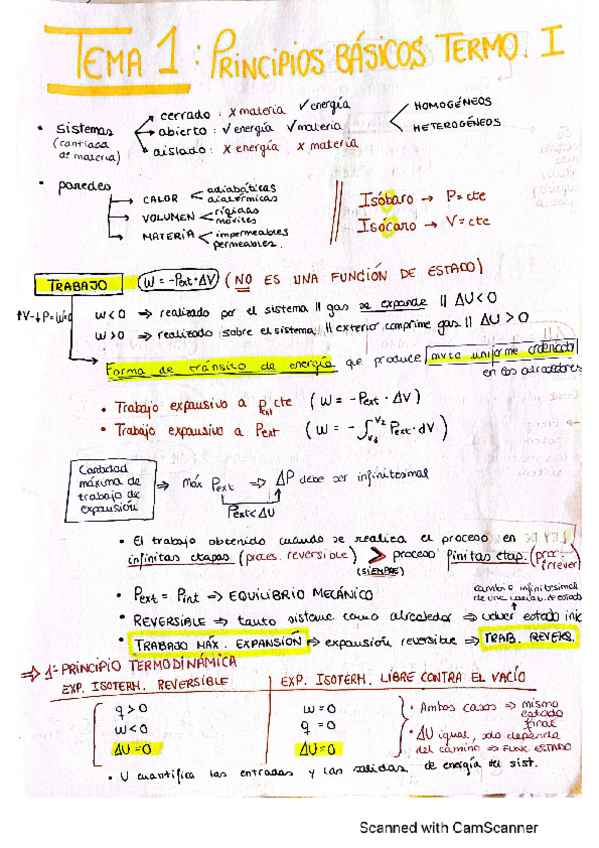 TEMA 1: PRINCIPIOS BÁSICOS TERMO. I
• sistemas (cantidad de materia)
→ cerrado : x materia √ energía
→ abierto : √ energía √ materia
→ aislado : x energía x materia
HOMOGÉNEOS
HETEROGÉNEOS
• paredes
→ CALOR < adiabáticas
diatérmicas
→ VOLUMEN < rígidas
móviles
→ MATERIA < impermeables
permeables.
Isóbaro → P=cte
Isócaro → V=cte
TRABAJO (W = -Pext·ΔV) (NO ES UNA FUNCIÓN DE ESTADO)
W<0 ⇒ realizado por el sistema || gas se expande || ΔU<0
W>0 ⇒ realizado sobre el sistema || exterior comprime gas || ΔU>0
Forma de tránsito de energía que produce mvto uniforme ordenado
en los alrededores
• Trabajo expansivo a Pext cte (W = -Pext · ΔV)
• Trabajo expansivo a Pext (W = - ∫ V2 V1 Pext·dV)
Cantidad
máxima de
trabajo de
expansión
⇒ máx Pext ⇒ ΔP debe ser infinitesimal
Pext<ΔU
• El trabajo obtenido cuando se realiza el proceso en
infinitas etapas (proces. reversible) > proceso finitas etap. (proc.
(SIEMPRE) irrever)
• Pext = Pint ⇒ EQUILIBRIO MECÁNICO
cambio infinitesimal
de una variab. de estado
• REVERSIBLE ⇒ tanto sistema como alrededor ⇒ volver estado inic
• TRABAJO MÁX. EXPANSIÓN ⇒ expansión reversible ⇒ TRAB. REVERS.
⇒ 1º PRINCIPIO TERMODINÁMICA
EXP. ISOTERM. REVERSIBLE
EXP. ISOTERM. LIBRE CONTRA EL VACÍO
q>0
W<0
ΔU=0
W=0
q=0
ΔU=0
• Ambos casos ⇒ mismo
estado
final
• ΔU igual, solo depende
del camino ⇒ FUNC ESTADO
• U cuantifica las entradas y las salidas de energía del sist.
Scanned with CamScanner